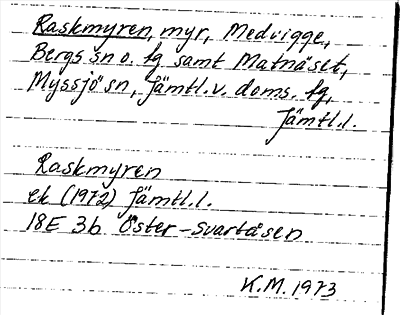 Raskmyren, myr, Medvigge,
Bergs sn o. fg samt Matnäset,
Myssjö sn, Jämtl.v. doms. fg,
Jämtl.l.
Raskmyren
ek (1972) Jämtl.l.
18E 3b Öster-Svartåsen
K.M. 1973